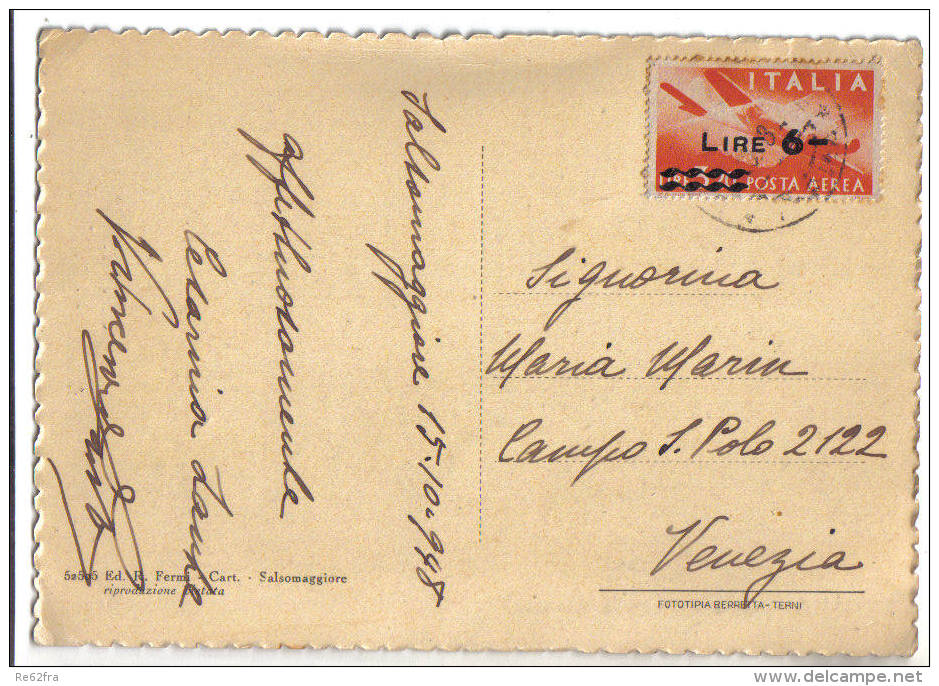 ITALIA
LIRE 6-
LIRE 3,20 POSTA AEREA
Salsomaggiore 15-10-948
affettuosamente
Cesarina
Signorina
Maria Marin
Campo S. Polo 2122
Venezia
52505 Ed. R. Fermi - Cart. - Salsomaggiore
riproduzione vietata
FOTOTIPIA BERRETTA-TERNI
Re62fra
www.delcampe.net